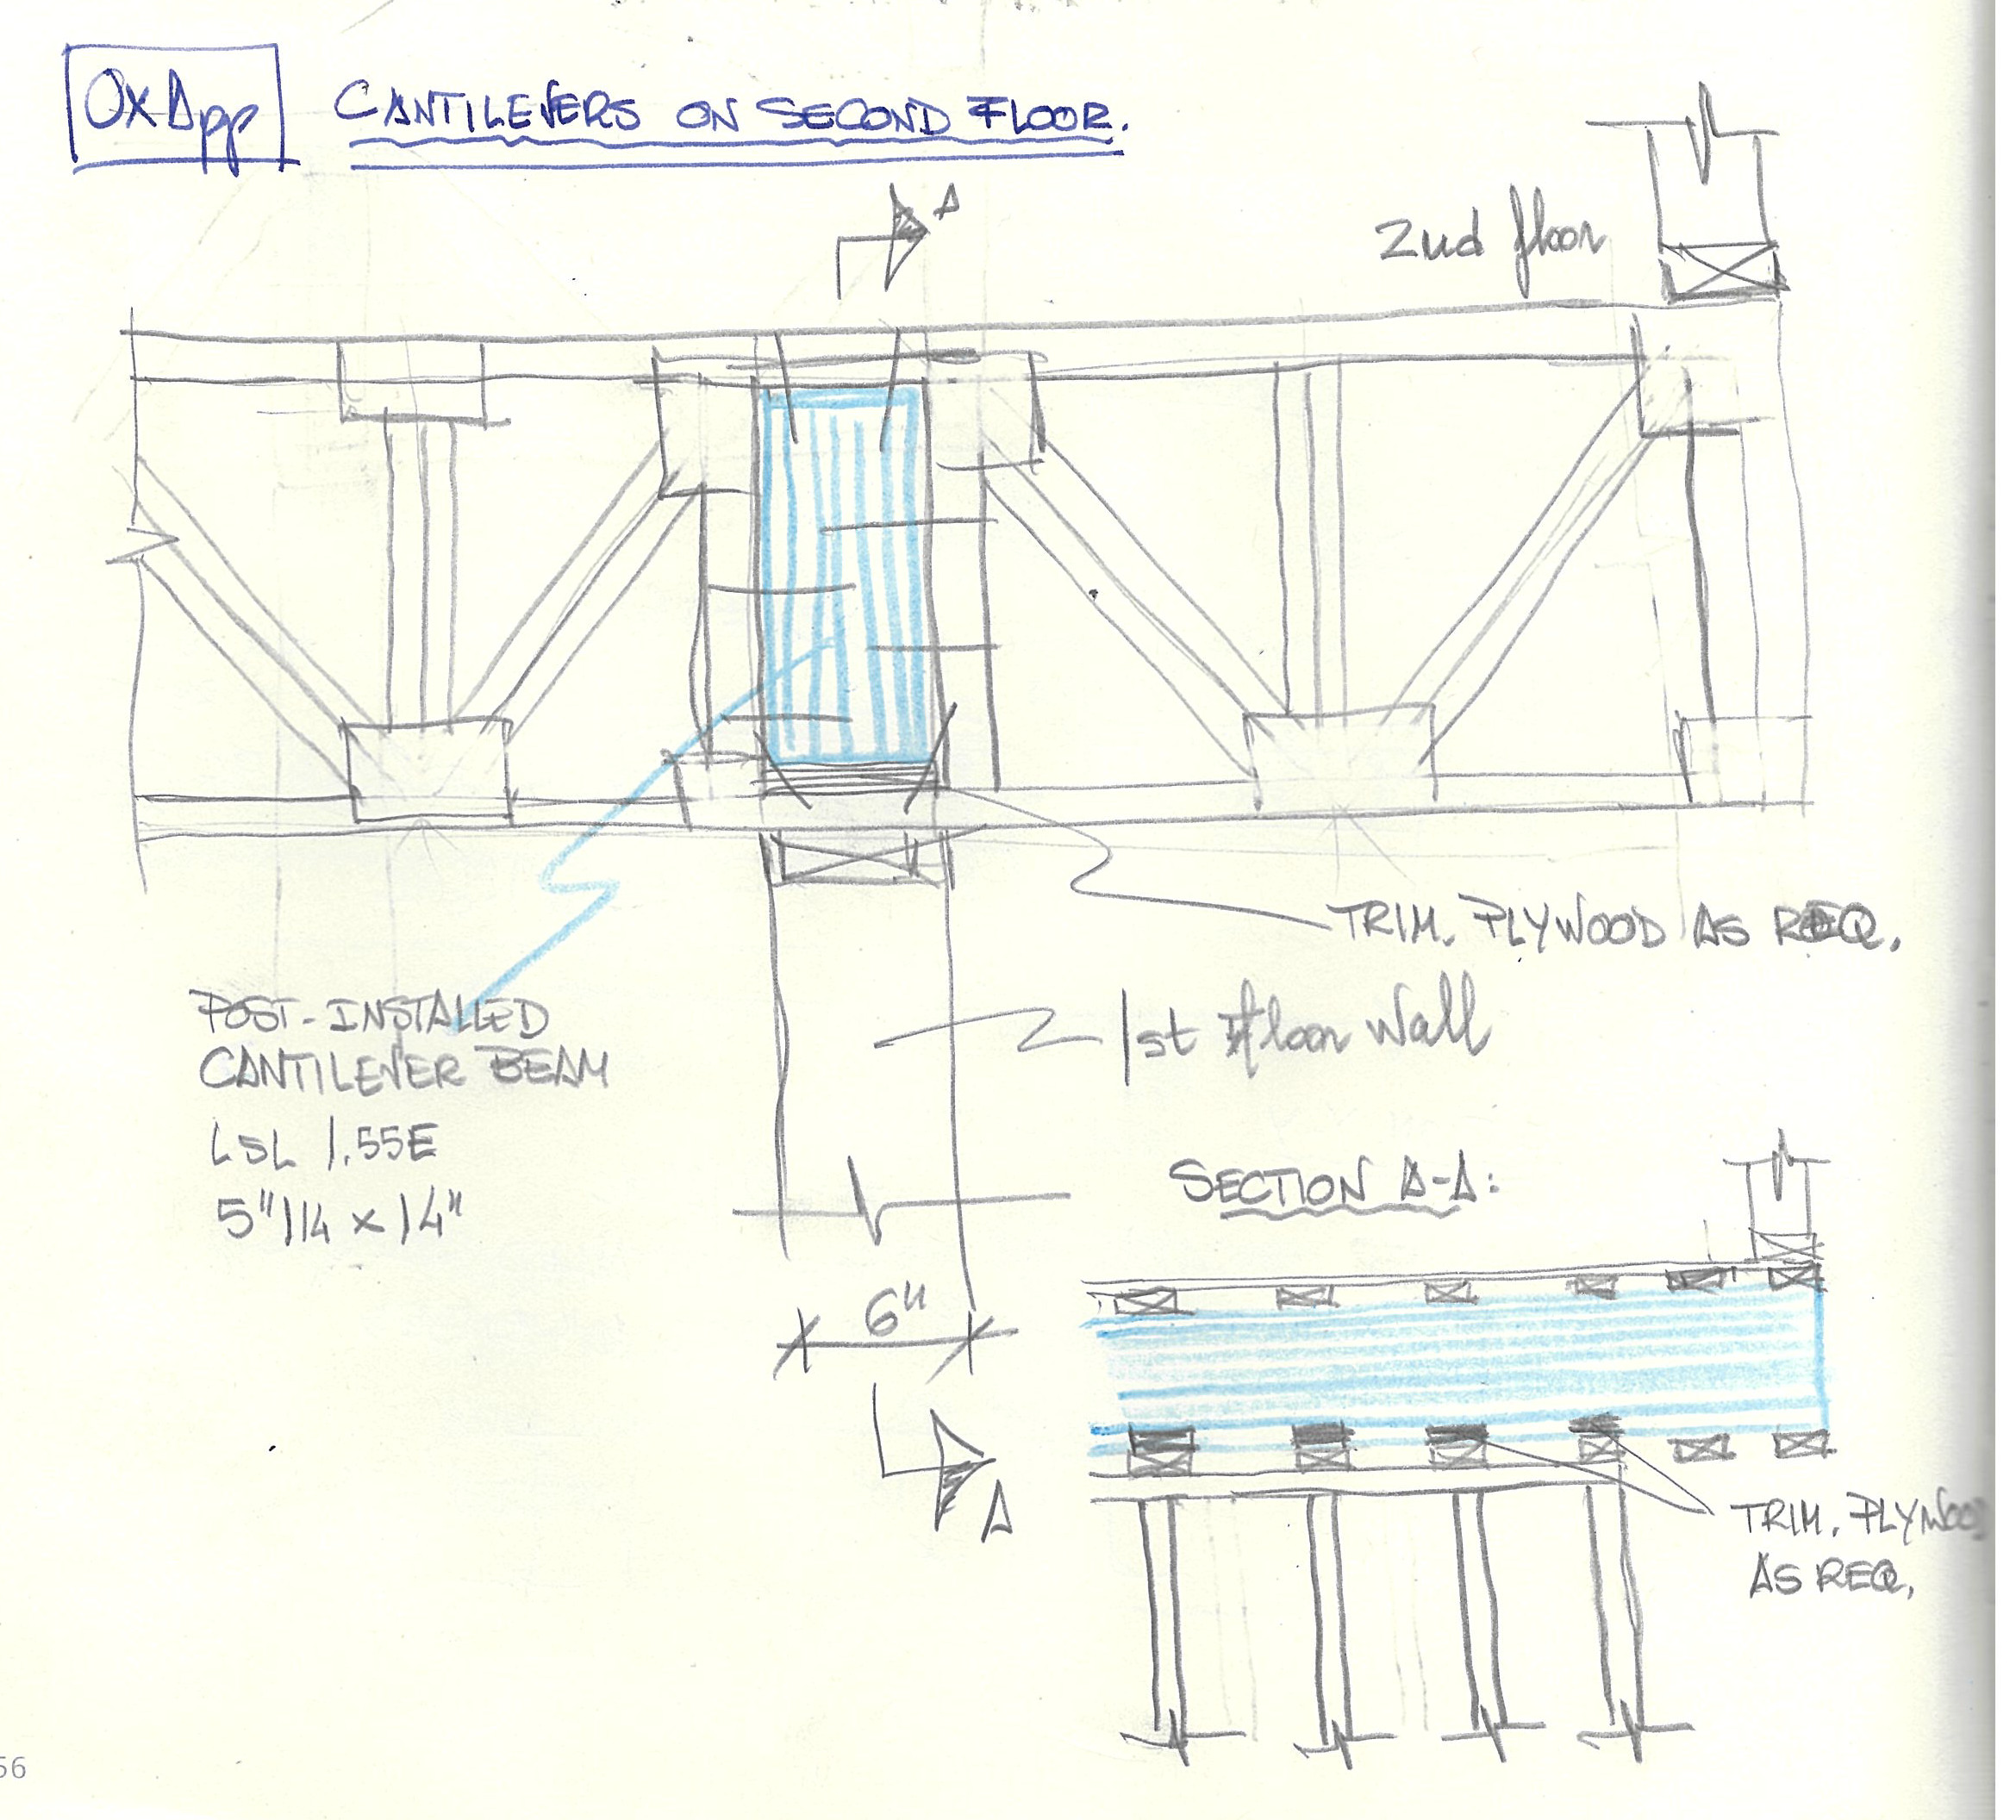 OxApp
CANTILEVERS ON SECOND FLOOR.
A
2nd floor
TRIM. PLYWOOD AS REQ.
POST-INSTALLED
CANTILEVER BEAM
LSL 1.55E
5"1/4 x 14"
1st floor wall
6"
A
SECTION A-A:
TRIM. PLYWOOD
AS REQ.
56